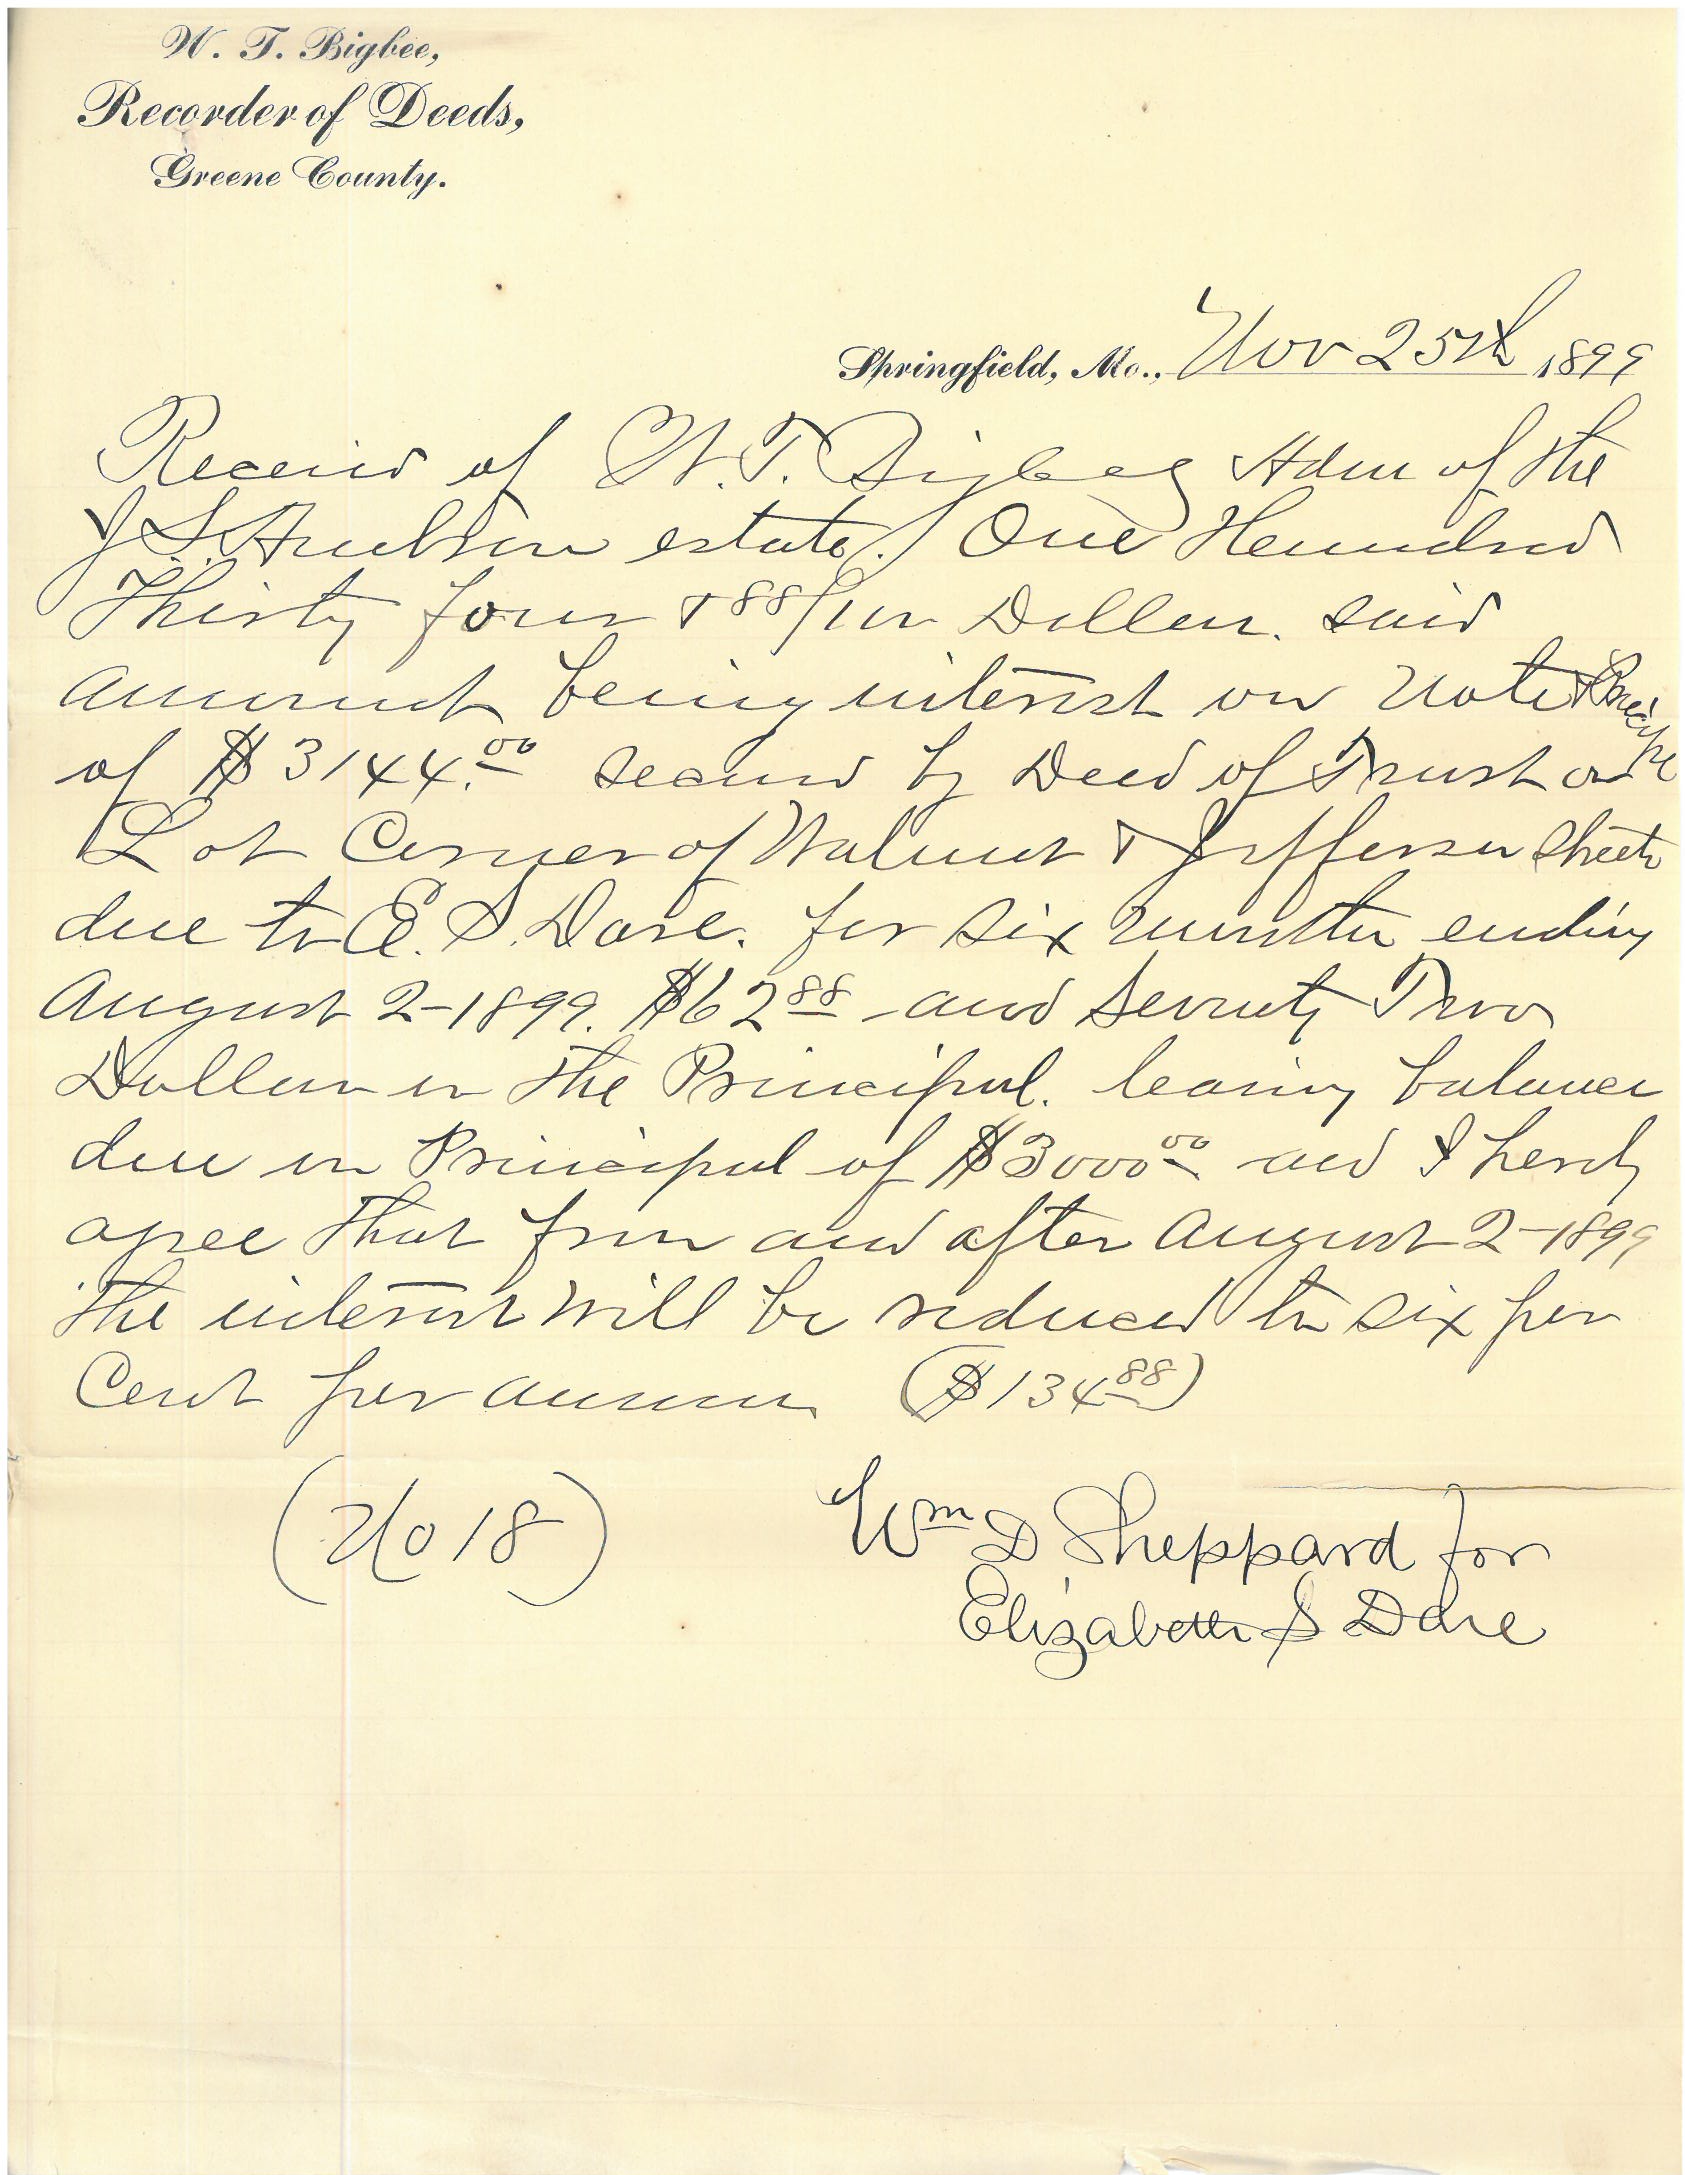 W. T. Bigbee,
Recorder of Deeds,
Greene County.
Springfield, Mo., Nov 25th 1899
Received of W. T. Bigbee Adm of the
J. S. estate. One Hundred
Thirty four & 88/100 Dollars. said
amount being interest on note & Principle
of $3144.00 secured by Deed of Trust on
Lot Corner of Walnut & Jefferson Streets
due to E. S. Dare. for six months ending
August 2-1899. $62 88 and Seventy Two
Dollars on the Principal. leaving balance
due on Principal of $3000 00 and I hereby
agree that from and after August 2-1899
the interest will be reduced to six per
Cent per annum ($134 88)
(No 18)
Wm D Sheppard for
Elizabeth S Dare